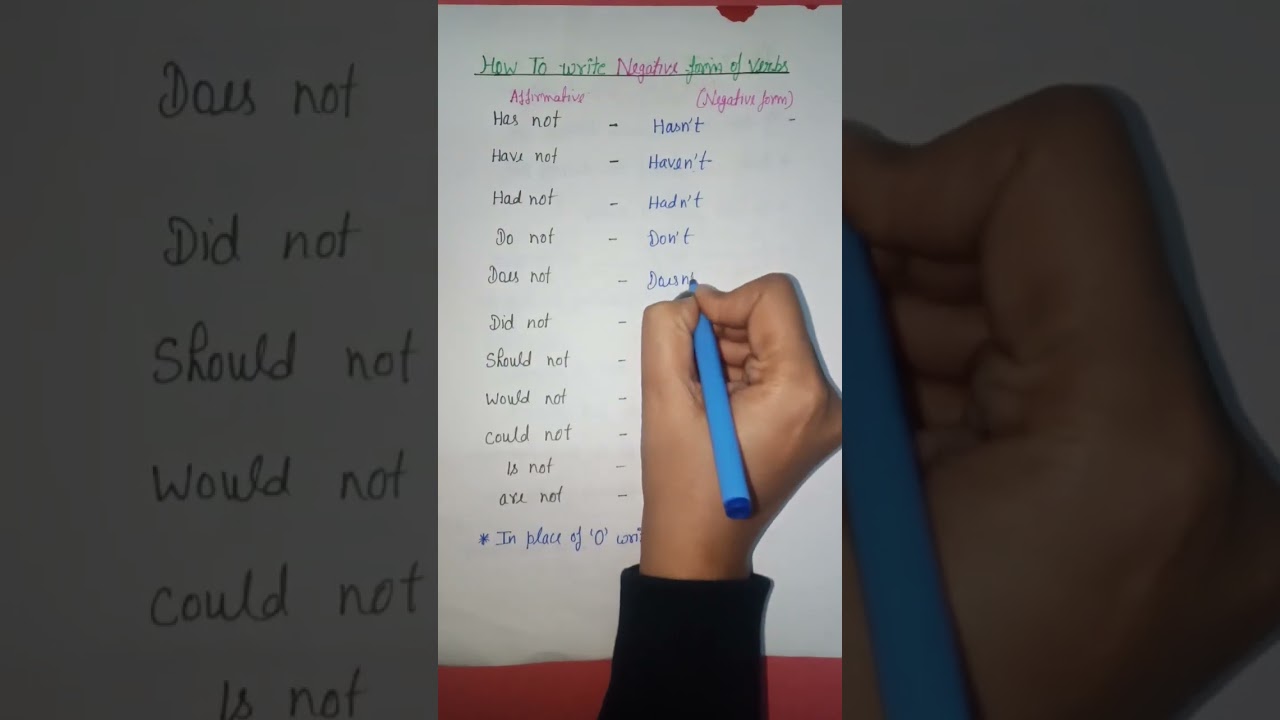 How To write Negative form of verbs
Affirmative (Negative form)
Has not - Hasn't -
Have not - Haven't
Had not - Hadn't
Do not - Don't
Does not - Doesn
Did not -
Should not -
Would not -
Could not -
Is not -
are not -
* In place of 'O' wri
Does not
Did not
Should not
Would not
Could not
Is not